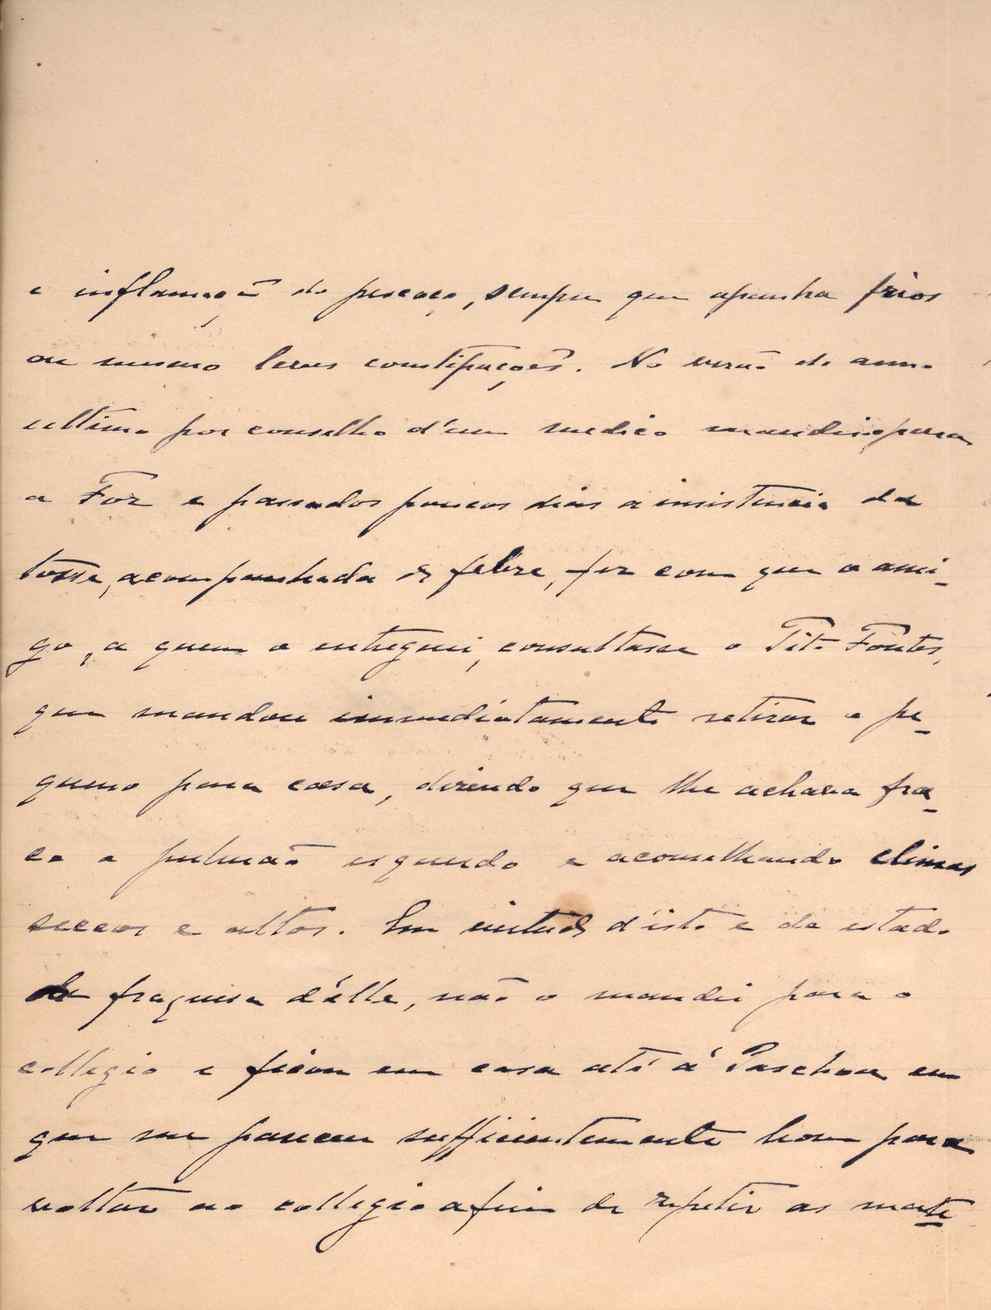 e inflamação do pescoço, sempre que apanha frios
ou mesmo leves constipações. No verão do anno
ultimo por conselho d'um medico mandei-o para
a Foz e passados poucos dias a insistencia da
tosse, acompanhada de febre, fez com que o ami-
go, a quem o entreguei, consultasse o Tito Fontes,
que mandou immediatamente retirar o pe-
queno para casa, dizendo que lhe achava fra-
co o pulmão esquerdo e aconselhando climas
seccos e altos. Em virtude d'isto e do estado
de fraqueza d'elle, não o mandei para o
collegio e ficou em casa até á Paschoa em
que me pareceu sufficientemente bom para
voltar ao collegio afim de repetir as mate